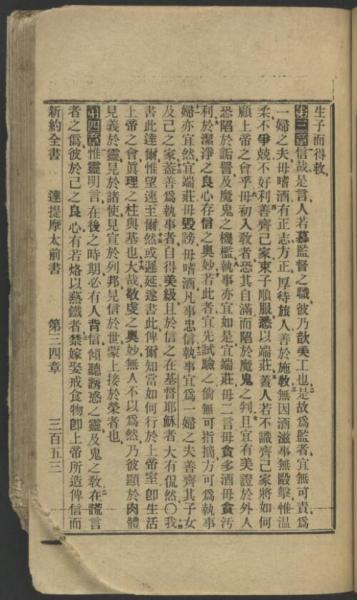 生子而得救
第三章信哉是言人若慕監督之職彼乃欲美工也是故爲監者宜無可責爲
一婦之夫毋嗜酒有正志方正厚待旅人善於施教無因酒滋事無毆擊惟溫
柔不爭競不好利善齊己家束子順服悉以端莊蓋人若不識齊己家將如何
顧上帝之會乎毋初入敎者恐其自滿而陷於魔鬼之判且宜有美證於外人
恐陷於詬訾及魔鬼之機檻執事亦宜如是宜端莊毋二言毋貪多酒毋貪污
利於潔淨之良心存信之奧妙若此者宜先試驗之倘無可指摘方可爲執事
婦亦宜然宜端莊毋毀謗毋嗜酒凡事忠信執事宜爲一婦之夫善齊其子女
及己之家蓋善爲執事者自得美級且於信之在基督耶穌者大有侃然〇我
書此達爾惟望速至爾然或遲延遂書此俾爾知當如何行於上帝室卽生活
上帝之會眞理之柱與基也大哉敬虔之奧妙無人不以爲然乃彼顯於肉體
見義於靈見於諸使見宣於列邦見信於世蒙上接於榮者也
第四章惟靈明言在後之時期必有人背信傾聽誘惑之靈及鬼之敎在謊言
者之僞彼於己心有若烙以藝鐵者禁嫁娶戒食物卽上帝所造俾信而
新約全書 達提摩太前書 第三四章 三百五三